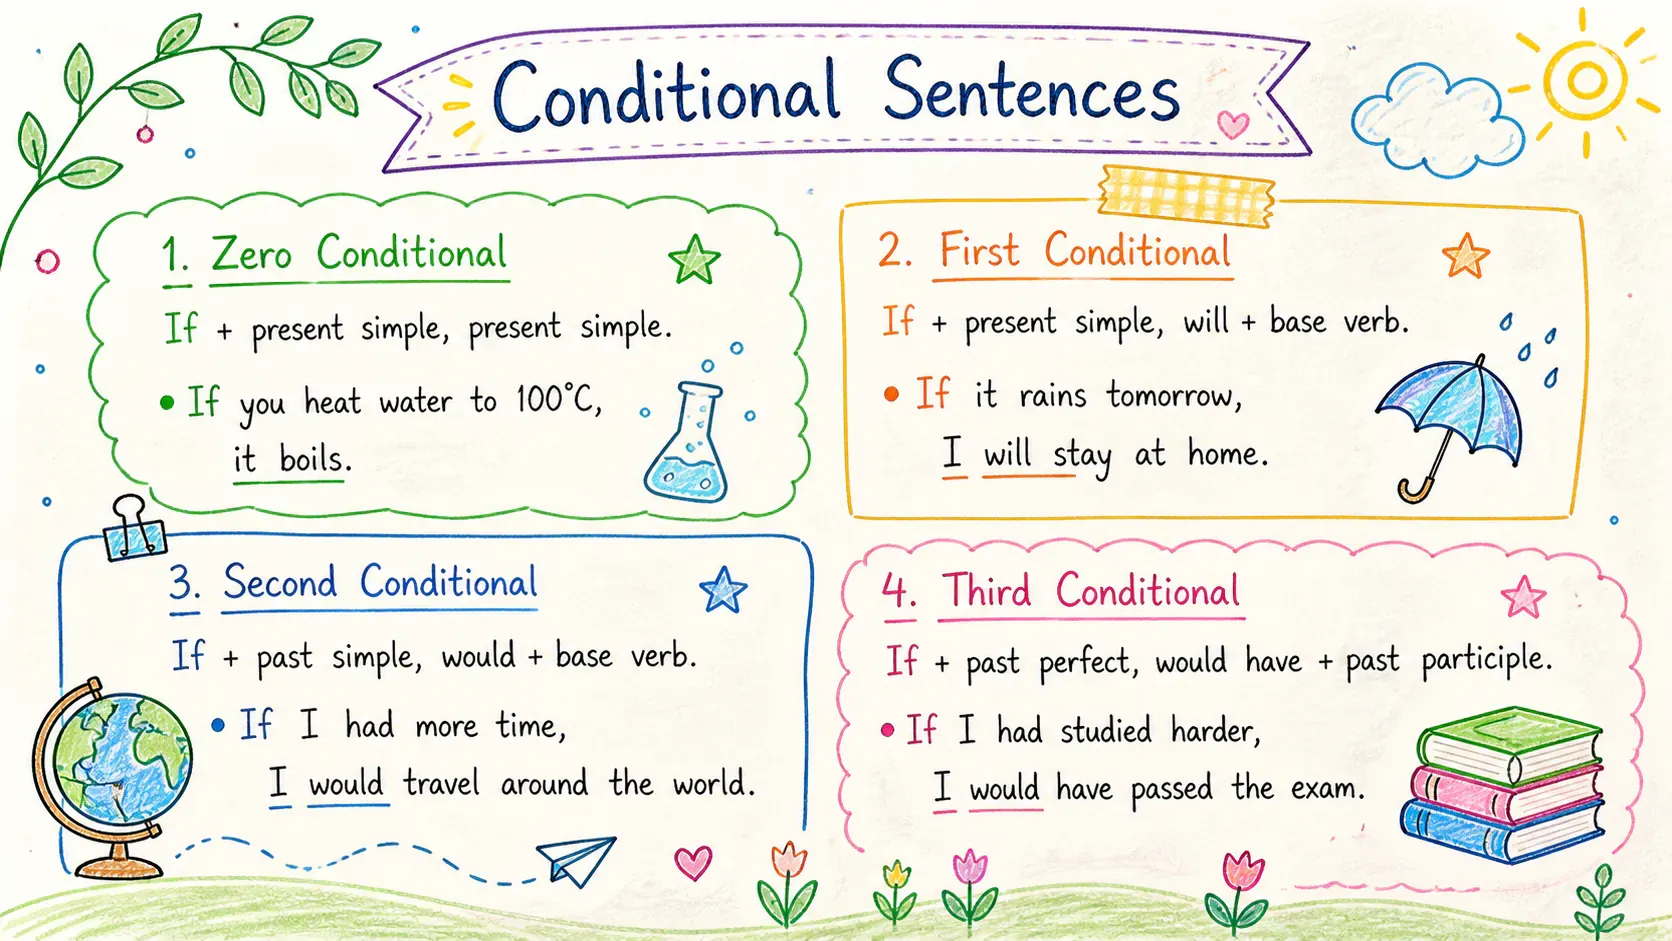 Conditional Sentences
1. Zero Conditional
If + present simple, present simple.
• If you heat water to 100°C,
it boils.
2. First Conditional
If + present simple, will + base verb.
• If it rains tomorrow,
I will stay at home.
3. Second Conditional
If + past simple, would + base verb.
• If I had more time,
I would travel around the world.
4. Third Conditional
If + past perfect, would have + past participle.
• If I had studied harder,
I would have passed the exam.